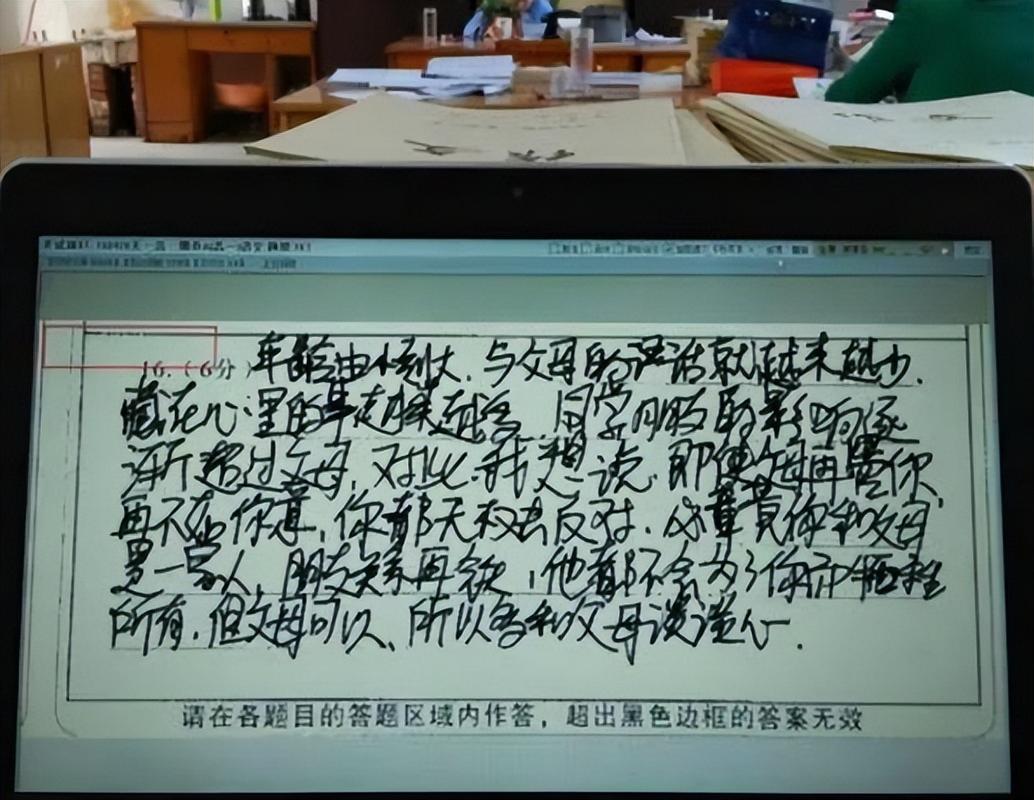 16.（6分）年龄由小到大,与父母的谈话就越来越少,
藏在心里的事越来越多.同学朋友的影响逐
渐超过父母,对此,我想说,即使父母再骂你,
再不如你意,你都无权去反对.必竟你和父母
是一家人,朋友关系再铁,他都不会为了你而牺牲
所有,但父母可以、所以多和父母谈谈心.
请在各题目的答题区域内作答，超出黑色边框的答案无效